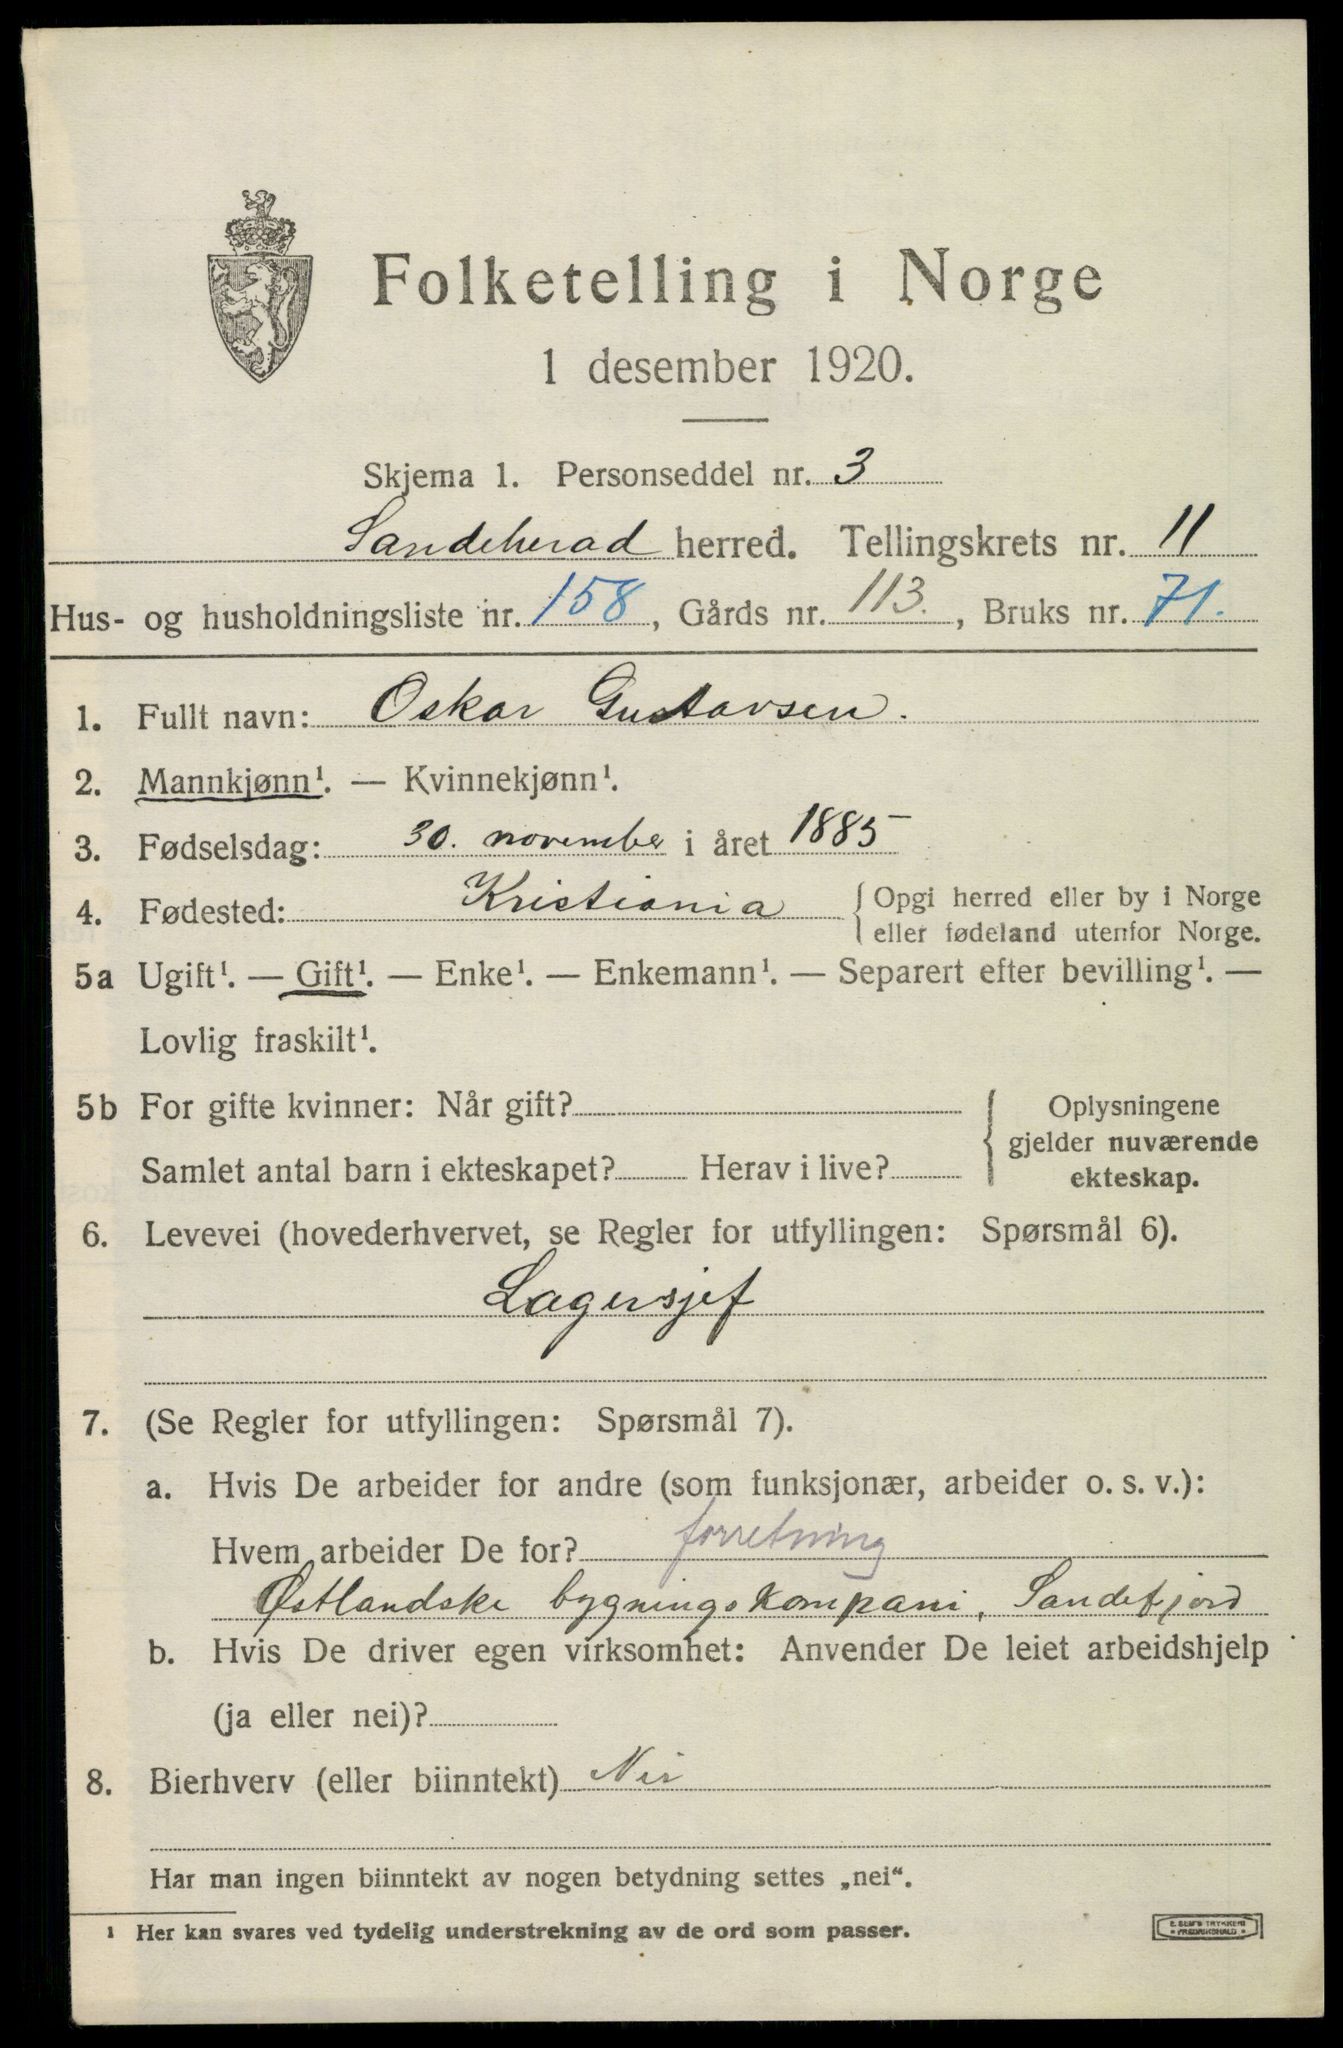 Folketelling i Norge
1 desember 1920.
Skjema 1. Personseddel nr. 3
Sandeherad herred. Tellingskrets nr. 11
Hus- og husholdningsliste nr. 158, Gårds nr. 113., Bruks nr. 71.
1. Fullt navn: Oskar Gustavsen.
2. Mannkjønn¹. — Kvinnekjønn¹.
3. Fødselsdag: 30. november i året 1885
4. Fødested: Kristiania { Opgi herred eller by i Norge
eller fødeland utenfor Norge.
5a Ugift¹. — Gift¹. — Enke¹. — Enkemann¹. — Separert efter bevilling¹. —
Lovlig fraskilt¹.
5b For gifte kvinner: Når gift? { Oplysningene
gjelder nuværende
Samlet antal barn i ekteskapet? Herav i live? ekteskap.
6. Levevei (hovederhvervet, se Regler for utfyllingen: Spørsmål 6).
Lagersjef
7. (Se Regler for utfyllingen: Spørsmål 7).
a. Hvis De arbeider for andre (som funksjonær, arbeider o. s. v.):
Hvem arbeider De for? forretning
Østlandske bygningskompani, Sandefjord
b. Hvis De driver egen virksomhet: Anvender De leiet arbeidshjelp
(ja eller nei)?
8. Bierhverv (eller biinntekt) Nei
Har man ingen biinntekt av nogen betydning settes „nei“.
¹ Her kan svares ved tydelig understrekning av de ord som passer.
E. SEM'S TRYKKERI
* FREDRIKSHALD *